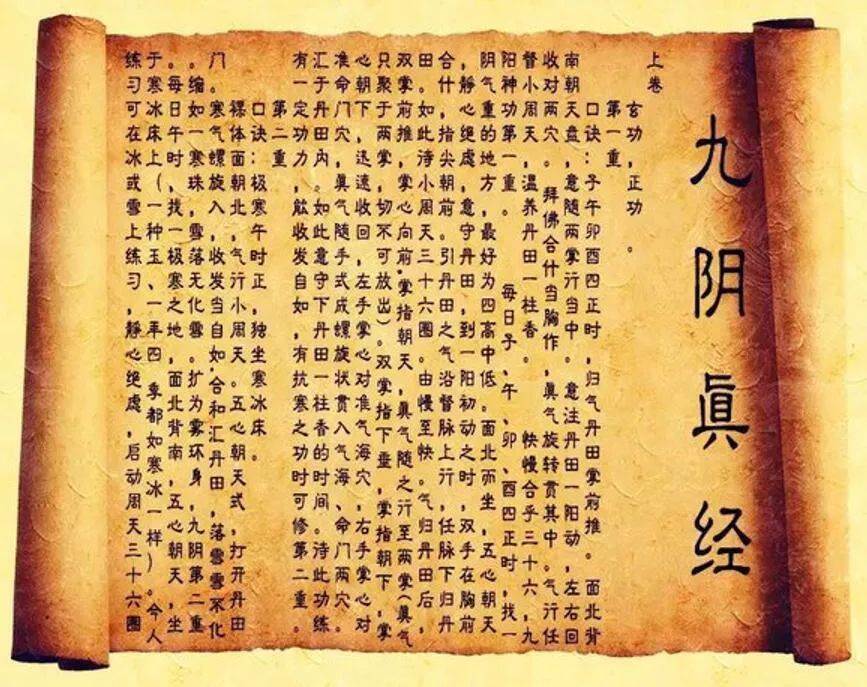 九阴眞经
上卷
玄功，正功。
第一重
口诀：子午卯酉四正时，归气丹田掌前推。 面北背
南朝天盘，意随两掌行当中。意注丹田一阳动，左右回
收对两穴。 拜佛合什当胸作，眞气旋转贯其中。气行任
督小周天，温养丹田一柱香。 快慢合乎三十六，九
阳神功第一重。 每日子、午、卯、酉四正时，找一
阴气重的地方，最好为四高中低。面北而坐，五心朝天
，静心绝虑，意守丹田，到一阳初动之时，双手在胸前
合什，指尖朝前。引丹田之气沿督脉上行，任脉下归丹
田。如此待小周天三十六圈。由慢至快。气归丹田后，
双掌前推，掌心向前，掌指朝天，眞气随之行至两掌（眞气
只聚于两掌，切不可放出）。双掌指下垂，掌指朝下，掌
心朝下，迅速收回，左手掌心对准气海穴，右手掌心对
准命门穴，眞气随手式成螺旋状贯入气海、命门两穴。
汇于丹田内。如此意守下丹田一柱香的时间。待此功练
有一定功力，能收发自如，有抗寒之功时可修第二重。
第二重
口诀：极寒午时正，独坐寒冰床。
裸体面朝北，气行小周天。五心朝天式，打开丹田
门。 寒气螺旋入，收发当自如，合和汇丹田，落雪雪不化
。缩如一寒珠，雪落无化雪。扩为雾环身，九阴第二重
。每日午时，找一极寒之地，面北背南，五心朝天，坐
于寒冰床上（一种玉、一年四 季都如寒冰一样）。今人
练习可在冰或雪上练习，静心绝虑，启动周天三十六圈